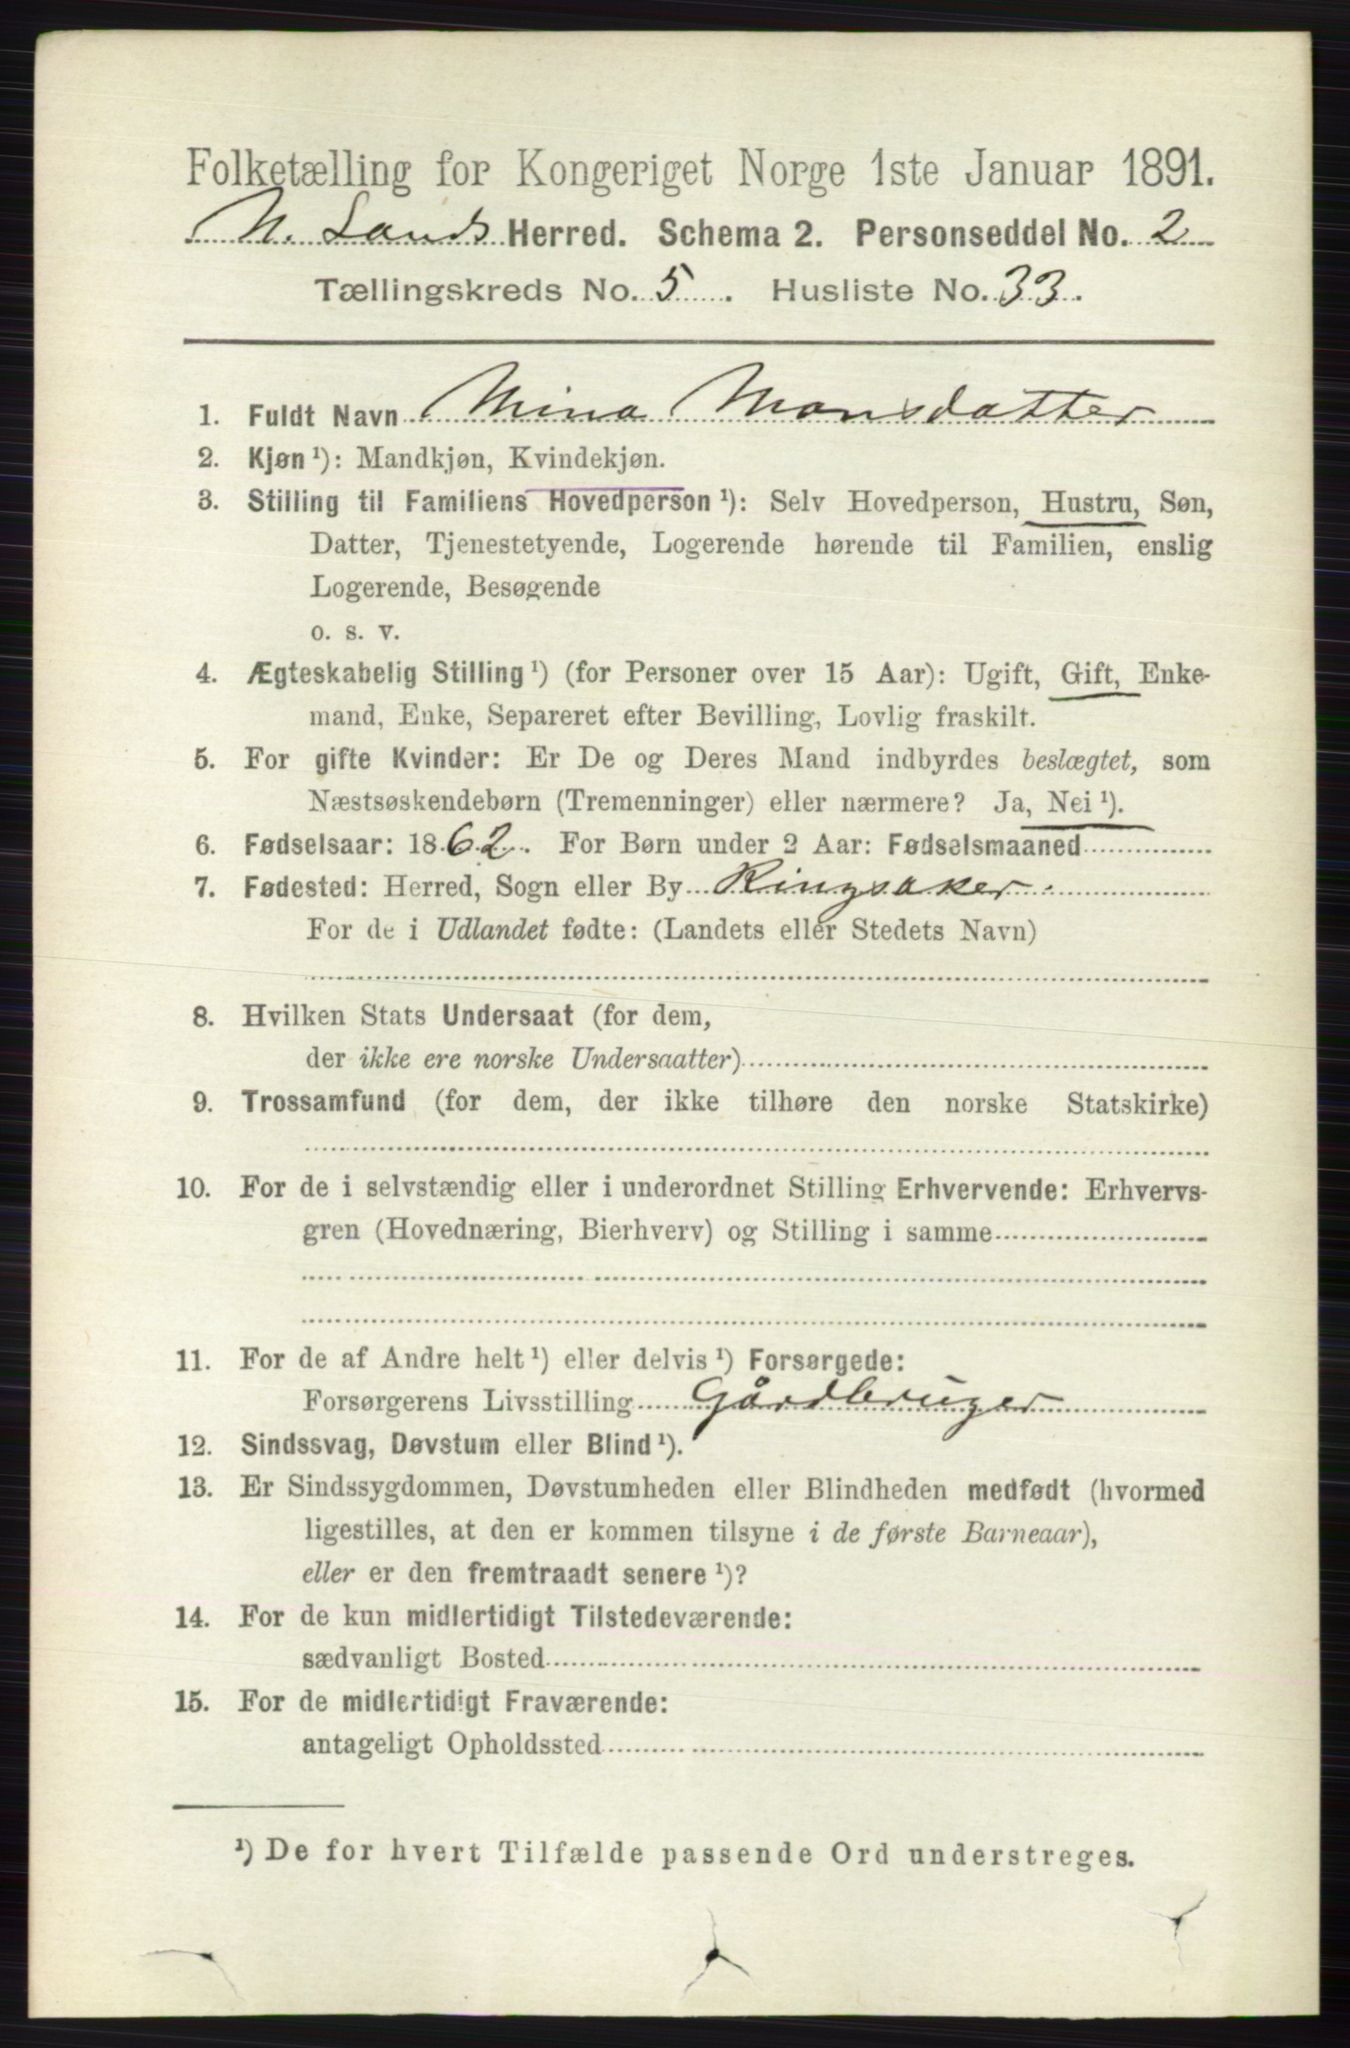 Folketælling for Kongeriget Norge 1ste Januar 1891.
N. Lands Herred. Schema 2. Personseddel No. 2
Tællingskreds No. 5. Husliste No. 33.
1. Fuldt Navn Mina Monsdatter
2. Kjøn ¹): Mandkjøn, Kvindekjøn.
3. Stilling til Familiens Hovedperson ¹): Selv Hovedperson, Hustru, Søn,
Datter, Tjenestetyende, Logerende hørende til Familien, enslig
Logerende, Besøgende
o. s. v.
4. Ægteskabelig Stilling ¹) (for Personer over 15 Aar): Ugift, Gift, Enke-
mand, Enke, Separeret efter Bevilling, Lovlig fraskilt.
5. For gifte Kvinder: Er De og Deres Mand indbyrdes beslægtet, som
Næstsøskendebørn (Tremenninger) eller nærmere? Ja, Nei ¹).
6. Fødselsaar: 1862. For Børn under 2 Aar: Fødselsmaaned
7. Fødested: Herred, Sogn eller By Ringsaker.
For de i Udlandet fødte: (Landets eller Stedets Navn)
8. Hvilken Stats Undersaat (for dem,
der ikke ere norske Undersaatter)
9. Trossamfund (for dem, der ikke tilhøre den norske Statskirke)
10. For de i selvstændig eller i underordnet Stilling Erhvervende: Erhvervs-
gren (Hovednæring, Bierhverv) og Stilling i samme
11. For de af Andre helt ¹) eller delvis ¹) Forsørgede:
Forsørgerens Livsstilling Gårdbruger
12. Sindssvag, Døvstum eller Blind ¹).
13. Er Sindssygdommen, Døvstumheden eller Blindheden medfødt (hvormed
ligestilles, at den er kommen tilsyne i de første Barneaar),
eller er den fremtraadt senere ¹)?
14. For de kun midlertidigt Tilstedeværende:
sædvanligt Bosted
15. For de midlertidigt Fraværende:
antageligt Opholdssted
¹) De for hvert Tilfælde passende Ord understreges.